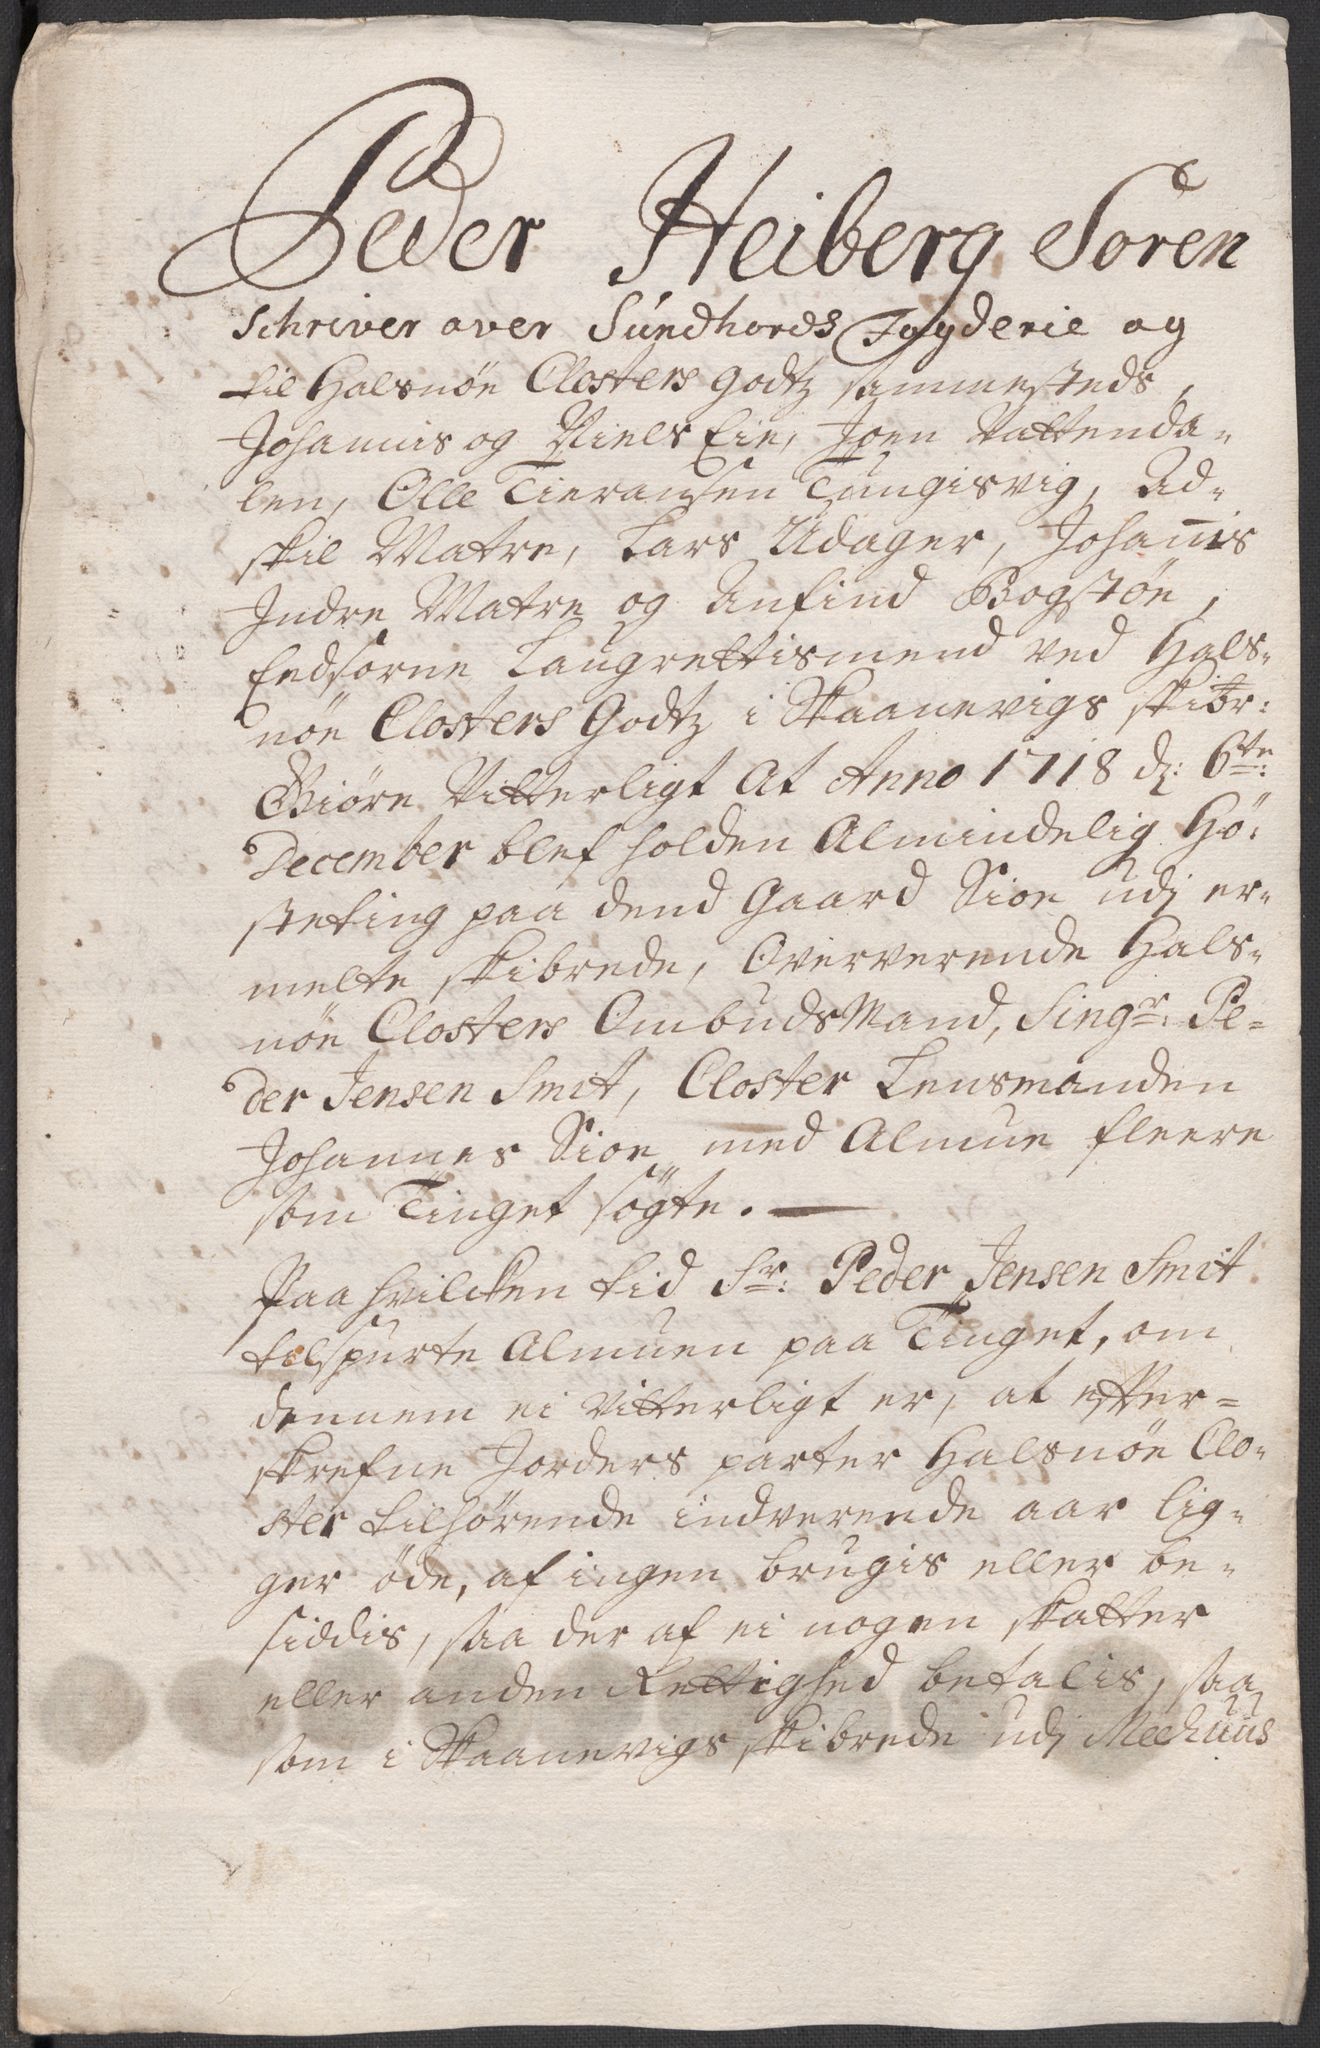 Peder Heiberg Soren
schriver over Sundhords Fogderie og
til Halsnöe Closters Godtz sammesteds,
Johannis og Niels Eie, Joen Vattenda-
len, Olle Tieransen Tungisvig, Ad-
skil Matre, Lars Udager, Johanis
Indre Matre og Anfind Bogstöe,
Eedsorne Laugrettismend ved Hals-
nöe Closters Godtz i Skaanevigs skibr:
Giöre Vitterligt At Anno 1718 d: 6te:
December blef holden Almindelig Hö-
steting paa dend Gaard Sioe udj er-
melte skibrede, Oververende Hals-
nöe Closters Ombuds Mand, Singr: Pe-
der Jensen Smit, Closter Lensmanden
Johannes Sioe med Almue fleere
som Tinget sögte. —
Paa hvilcken tid Sr: Peder Jensen Smit
tilspurte Almuen paa Tinget, om
dennem ei Vitterligt er, at effter-
skrefne Jorders parter Halsnöe Clo-
ster tilhörende indverende aar lig-
ger öde, af ingen brugis eller be-
siddis, saa der af ei nogen skatter
eller anden Rettighed betalis, saa
som i Skaanevigs skibrede udj Meehuus